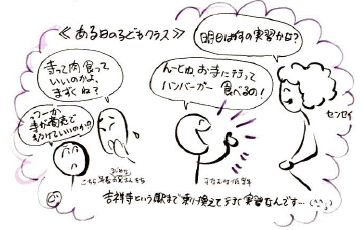 ≪ある日の子どもクラス≫
明日は何の実習かな?
寺って肉食って
いいのかよ、
まずくね?
んーとね、お寺に行って
ハンバーガー 食べるの!
っつーか
寺が商売で
センセイ
こちら年長のお兄さんたち
吉祥寺という駅まで乗り換えて行く実習なんです…